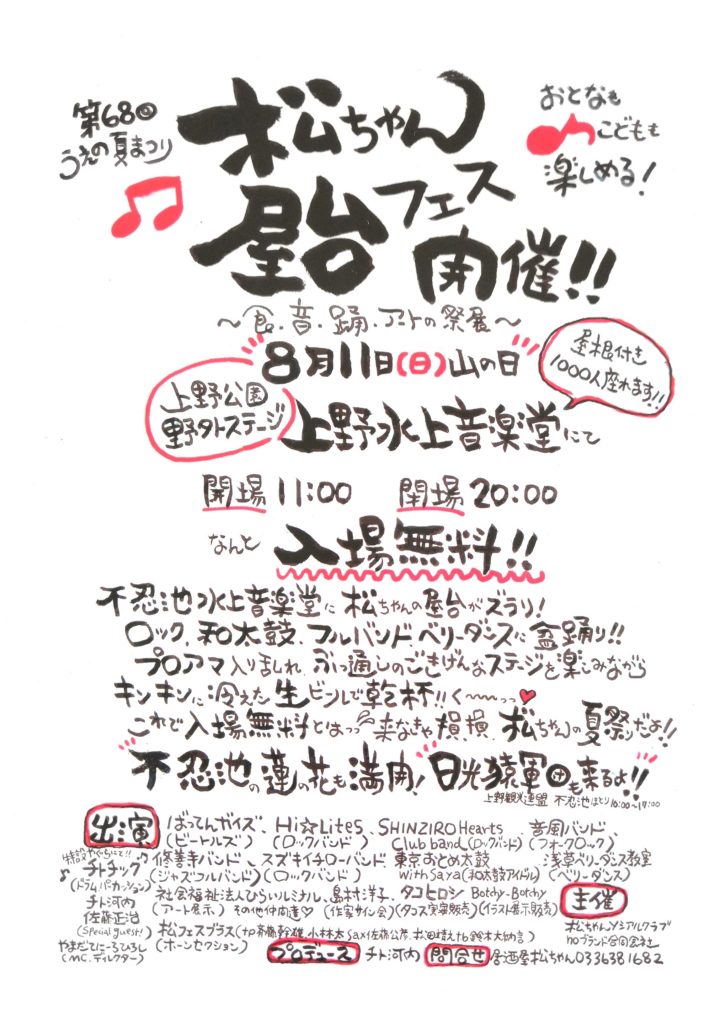 第68回
うえの夏まつり
松ちゃん
屋台フェス
開催!!
おとなも
こどもも
楽しめる!
〜食・音・踊・アートの祭展〜
8月11日(日)山の日
屋根付き
1000人座れます!!
上野公園
野外ステージ
上野水上音楽堂にて
開場 11:00 閉場 20:00
なんと 入場無料!!
不忍池水上音楽堂に松ちゃんの屋台がズラリ!
ロック、和太鼓、フルバンド、ベリーダンスに盆踊り!!
プロアマ入り乱れ、ぶっ通しのごきげんなステージを楽しみながら
キンキンに冷えた生ビールで乾杯!!く〜〜っっ♥
これで入場無料とはっっ 来なきゃ損損、松ちゃんの夏祭りだよ!!
不忍池の蓮の花も満開! 日光猿軍団も来るよ!!
上野観光連盟 不忍池ほとり 10:00〜17:00
出演
ばってんガイズ、Hi☆LiteS、SHINZIRO Hearts、音風バンド、
(ビートルズ) (ロックバンド) Club band(ロックバンド) (フォークロック)
特設やぐらにて!!
チトチック
(ドラムパーカッション)
チト河内
佐藤正治
(Special guest!)
やまだてにーろひろし
(MC.ディレクター)
修善寺バンド、スズキイチローバンド、東京おとめ太鼓 浅草ベリーダンス教室
(ジャズコルバンド) (ロックバンド) with Saya(和太鼓アイドル) (ベリーダンス)
社会福祉法人ひらいルミナル、島村洋子、タコヒロシ Botchy-Botchy
(アート展示) その他仲間達♡ (作家サイン会) (タコス実演販売) (イラスト展示販売)
松フェスブラス(tp斉藤幹雄、小林太 sax佐藤公彦、
(ホーンセクション)
主催
松ちゃんソシアルクラブ
noブランド合同会社
プロデュース チト河内 問合せ 居酒屋松ちゃん0336381682